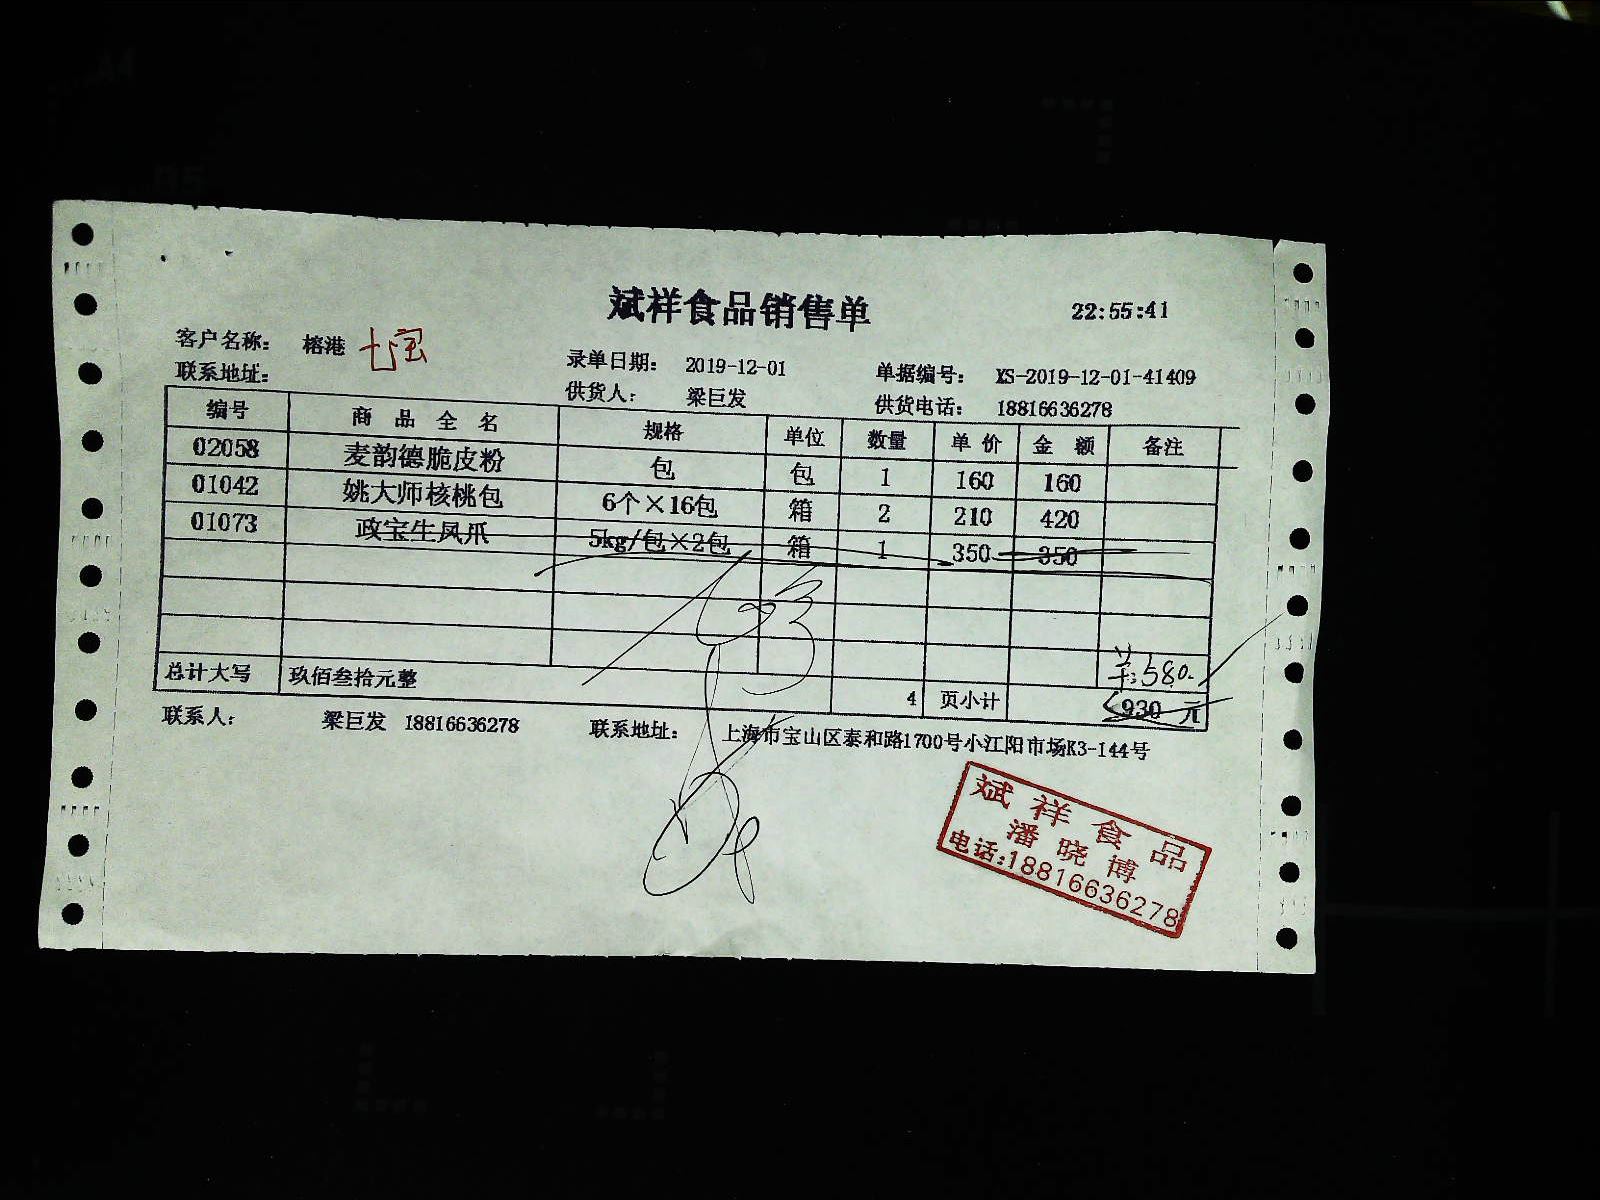 斌祥食品销售单 22:55:41
客户名称： 榕港 七宝 录单日期： 2019-12-01 单据编号： XS-2019-12-01-41409
联系地址： 供货人： 梁巨发 供货电话： 18816636278
编号 商品全名 规格 单位 数量 单价 金额 备注
02058 麦韵德脆皮粉 包 包 1 160 160
01042 姚大师核桃包 6个×16包 箱 2 210 420
01073 政宝生凤爪 5kg/包×2包 箱 1 350 350
580.
总计大写 玖佰叁拾元整 4 页小计 930 元
联系人： 梁巨发 18816636278 联系地址： 上海市宝山区泰和路1700号小江阳市场K3-144号
斌祥食品
潘晓博
电话:18816636278